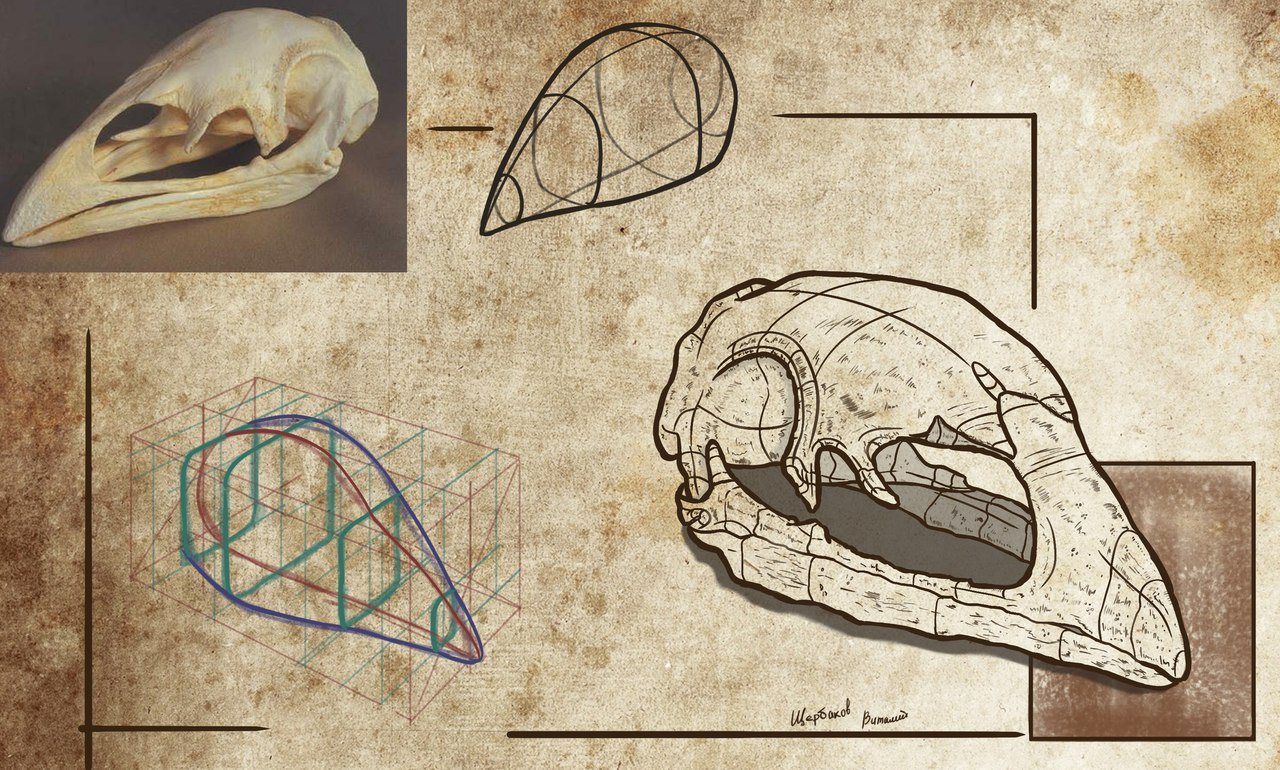 Щербаков Виталий